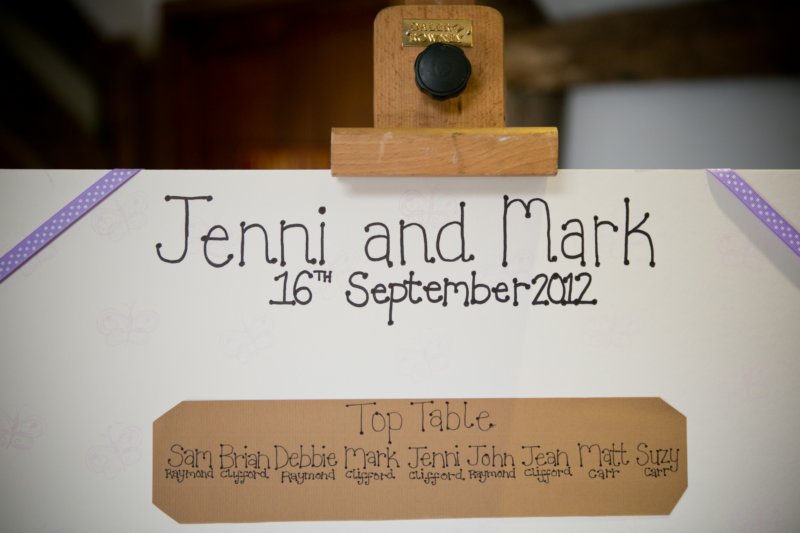 DALER
ROWNEY
Jenni and Mark
16TH September 2012
Top Table
Sam Brian Debbie Mark Jenni John Jean Matt Suzy
Raymond Clifford Raymond Clifford Clifford Raymond Clifford Carr Carr